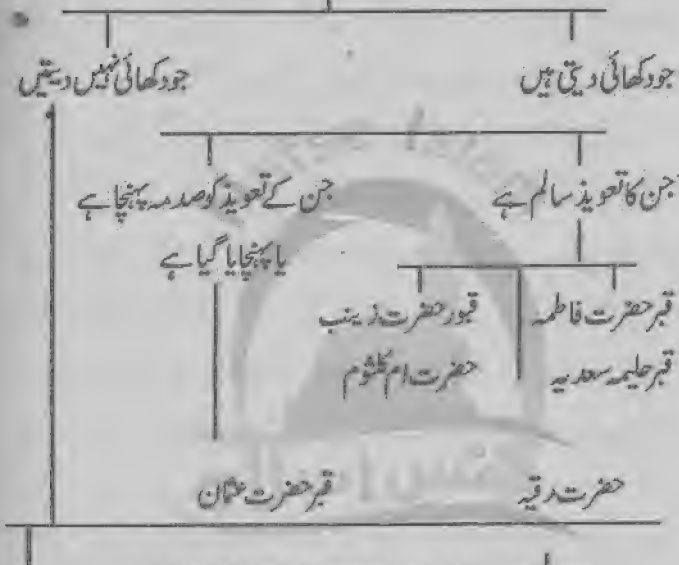 جو دکھائی دیتی ہیں
جو دکھائی نہیں دیتیں
جن کا تعویذ سالم ہے
جن کے تعویذ کو صدمہ پہنچا ہے
یا پہنچایا گیا ہے
قبر حضرت فاطمہ
قبور حضرت زینب
قبر حلیمہ سعدیہ
حضرت ام کلثوم
حضرت رقیہ
قبر حضرت عثمان